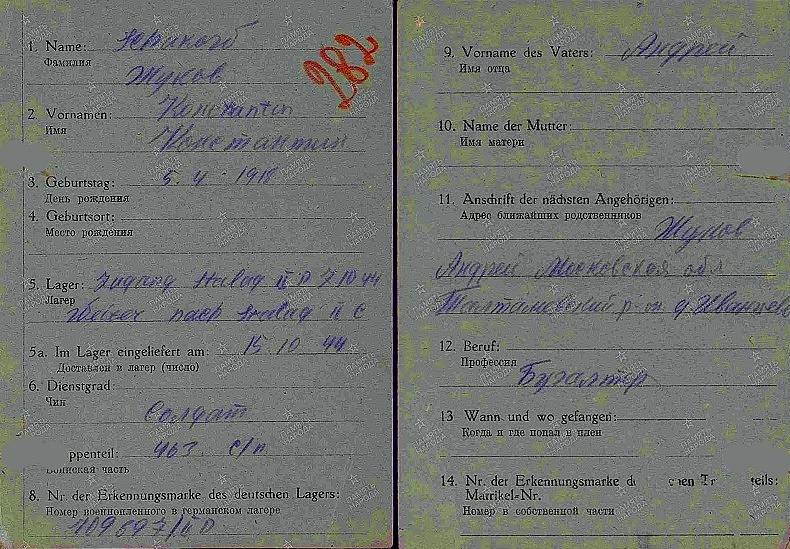 282
1. Name:
Фамилия
Жуков
2. Vornamen: Konstantin
Имя
Константин
3. Geburtstag: 5. 4 - 1918
День рождения
4. Geburtsort:
Место рождения
5. Lager: Zugang Stalag II D 7 10 44
Лагер
Weiter nach Stalag II C
5a. Im Lager eingeliefert am: 15. 10 44
Доставлен в лагер (число)
6. Dienstgrad:
Чин
Солдат
ppenteil: 463. С/п
Воинская часть
8. Nr. der Erkennungsmarke des deutschen Lagers:
Номер военнопленного в германском лагере
109697/II D
9. Vorname des Vaters: Андрей
Имя отца
10. Name der Mutter:
Имя матери
11. Anschrift der nächsten Angehörigen:
Адрес ближайших родственников
Жуков
Андрей Московская обл
р-он д. Иванцево
12. Beruf:
Профессия
Бугалтер
13 Wann und wo gefangen:
Когда и где попал в плен
14. Nr. der Erkennungsmarke d chen Tr teils:
Matrikel-Nr.
Номер в собственной части